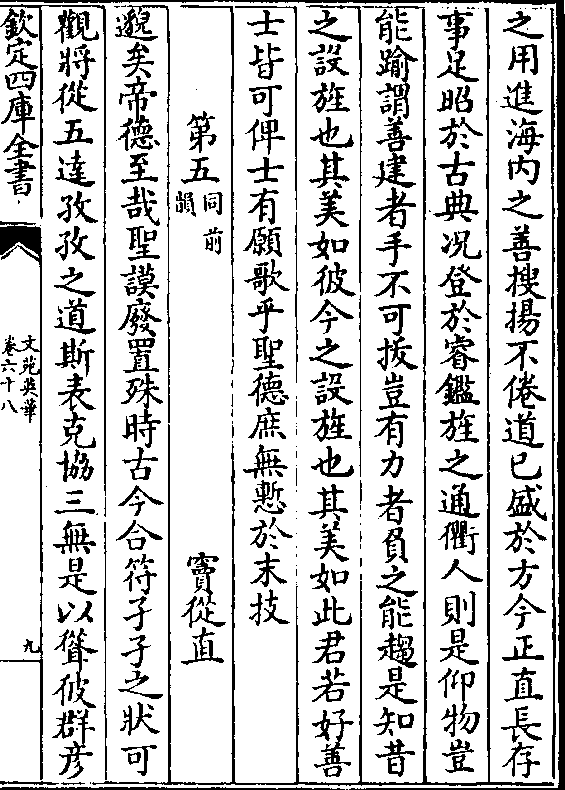 之用進海内之善搜揚不倦道已盛於方今正直長存
事足昭於古典况登於睿鑑旌之通衢人則是仰物豈
能踰謂善建者手不可拔豈有力者負之能趨是知昔
之設旌也其美如彼今之設旌也其美如此君若好善
士皆可俾士有願歌乎聖德庶無慙於末技
第五同前韻 竇從直
邈矣帝德至哉聖謨廢置殊時古今合符孑孑之狀可
觀將從五達孜孜之道斯表克協三無是以聳彼群彦
欽定四庫全書
文苑英華
卷六十八
九